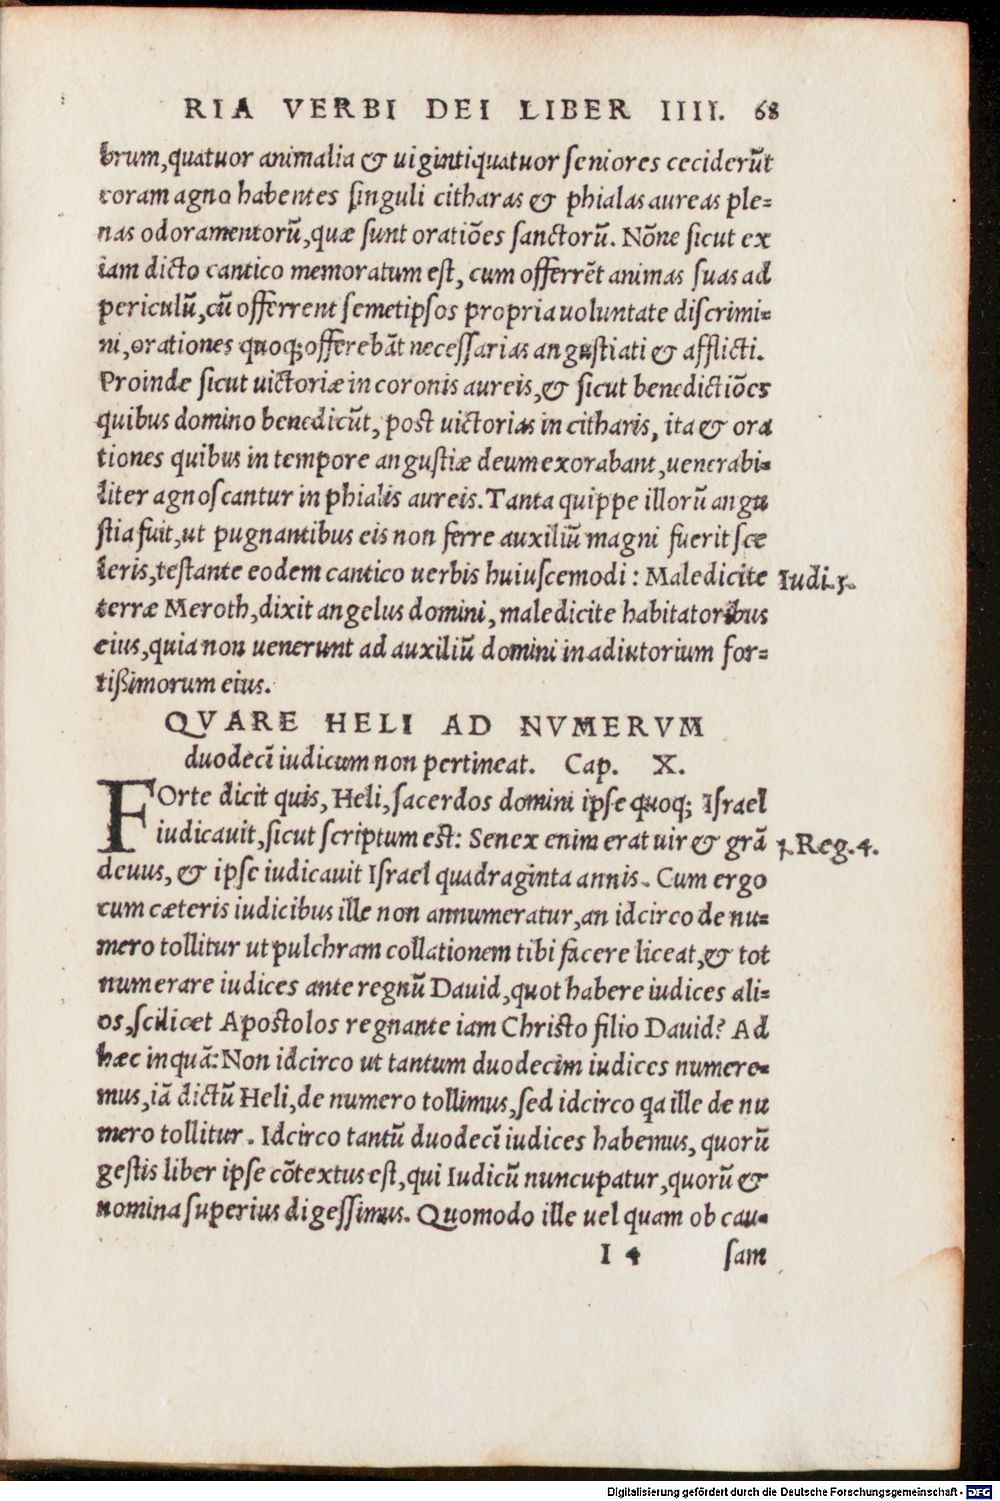 RIA VERBI DEI LIBER IIII. 68
brum, quatuor animalia & uigintiquatuor seniores ceciderũt
coram agno habentes singuli citharas & phialas aureas ple=
nas odoramentorũ, quæ sunt oratiões sanctorũ. Nõne sicut ex
iam dicto cantico memoratum est, cum offerrẽt animas suas ad
periculũ, cũ offerrent semetipsos propria uoluntate discrimi=
ni, orationes quoq; offerebãt necessarias angustiati & afflicti.
Proinde sicut uictoriæ in coronis aureis, & sicut benedictiões
quibus domino benedicũt, post uictorias in citharis, ita & ora
tiones quibus in tempore angustiæ deum exorabant, uenerabi=
liter agnoscantur in phialis aureis. Tanta quippe illorũ angu
stia fuit, ut pugnantibus eis non ferre auxiliũ magni fuerit sce
leris, testante eodem cantico uerbis huiuscemodi: Maledicite Iudi.5.
terræ Meroth, dixit angelus domini, maledicite habitatoribus
eius, quia non uenerunt ad auxiliũ domini in adiutorium for=
tißimorum eius.
QVARE HELI AD NVMERVM
duodecĩ iudicum non pertineat. Cap. X.
FOrte dicit quis, Heli, sacerdos domini ipse quoq; Israel
iudicauit, sicut scriptum est: Senex enim erat uir & grã 1.Reg.4.
deuus, & ipse iudicauit Israel quadraginta annis. Cum ergo
cum cæteris iudicibus ille non annumeratur, an idcirco de nu=
mero tollitur ut pulchram collationem tibi facere liceat, & tot
numerare iudices ante regnũ Dauid, quot habere iudices ali=
os, scilicet Apostolos regnante iam Christo filio Dauid? Ad
hæc inquã: Non idcirco ut tantum duodecim iudices numere=
mus, iã dictũ Heli, de numero tollimus, sed idcirco qa ille de nu
mero tollitur. Idcirco tantũ duodecĩ iudices habemus, quorũ
gestis liber ipse cõtextus est, qui Iudicũ nuncupatur, quorũ &
nomina superius digessimus. Quomodo ille uel quam ob cau=
I 4 sam
Digitalisierung gefördert durch die Deutsche Forschungsgemeinschaft - DFG